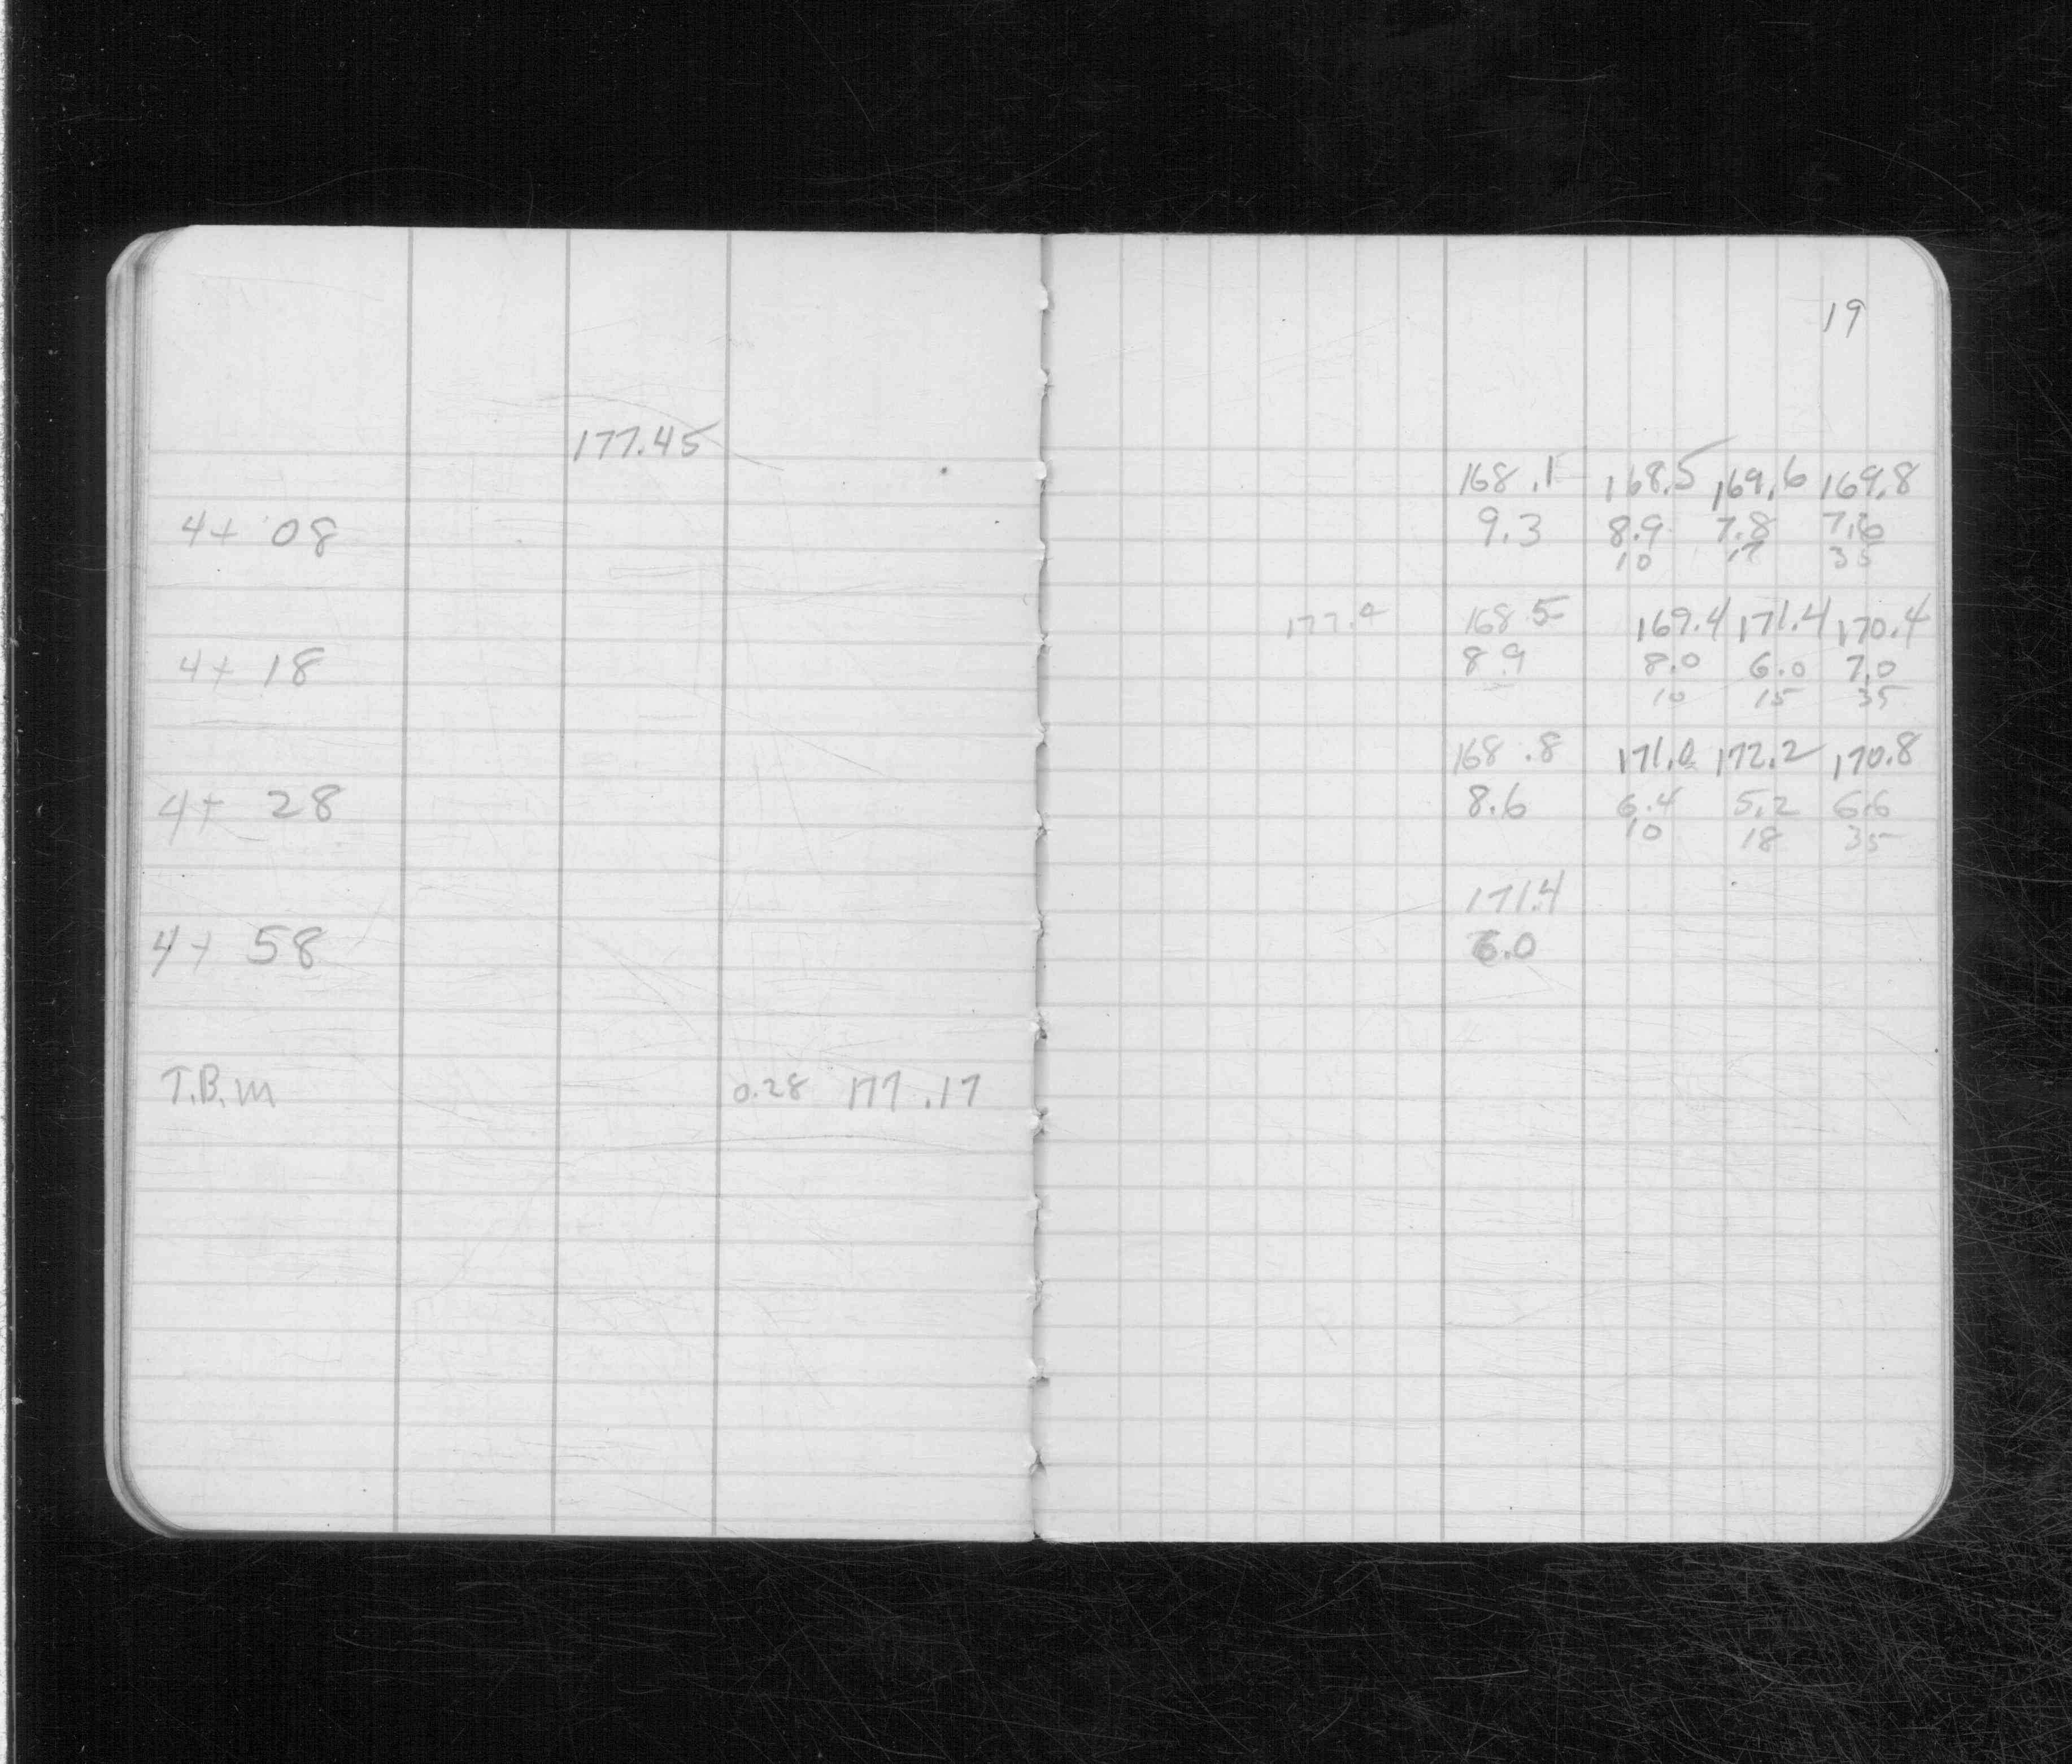 19
177.45
168.1 168.5 169.6 169.8
4+ 08 9.3 8.9 7.8 7.6
10 17 35
177.4 168.5 169.4 171.4 170.4
4+ 18 8.9 8.0 6.0 7.0
10 15 35
168.8 171.0 172.2 170.8
4+ 28 8.6 6.4 5.2 6.6
10 18 35
171.4
4+ 58 6.0
T.B.M 0.28 177.17